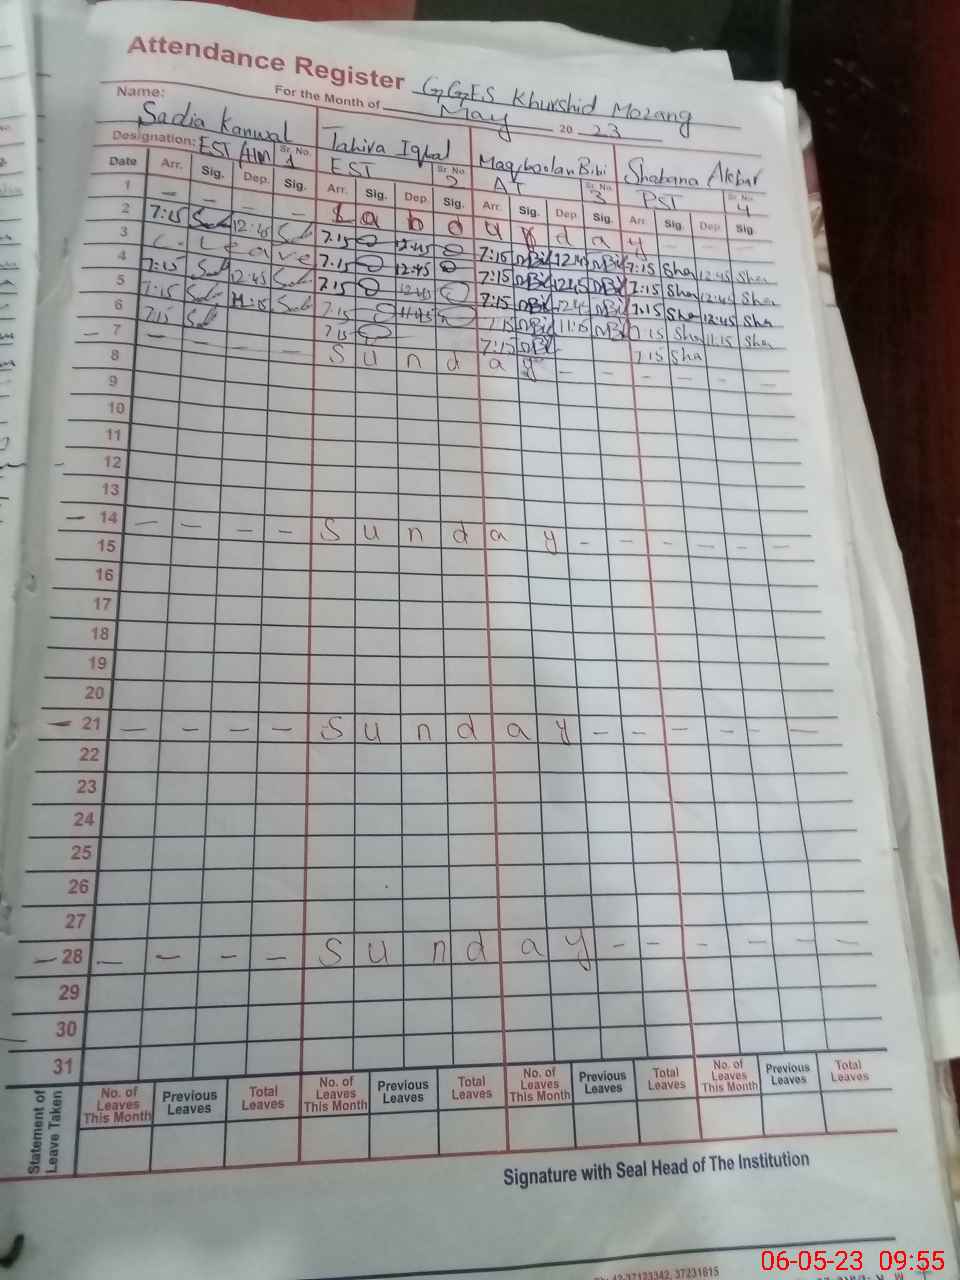 Attendance Register GGES Khurshid Mozang
For the Month of May 20 23
Name: Sadia Kanwal Tahira Iqbal Maqboolan Bibi Shabana Akbar
Designation: EST/HM Sr. No. 1 EST Sr. No. 2 AT Sr. No. 3 PST Sr. No. 4
Date Arr. Sig. Dep. Sig. Arr. Sig. Dep. Sig. Arr. Sig. Dep. Sig. Arr. Sig. Dep. Sig.
1 - - - - L a b o u r d a y - - -
2 7:15 12:45 7:15 12:45 7:15 7:15 Sha 12:45 Sha
3 C. Leave 7:15 12:45 7:15 12:45 7:15 Sha 12:45 Sha
4 7:15 12:45 7:15 12:45 7:15 7:15 Sha 12:45 Sha
5 7:15 11:15 7:15 11:45 7:15 11:15 7:15 Sha 11:15 Sha
6 7:15 7:15 7:15 7:15 Sha
- 7 - - - - S u n d a y - - - - - -
8
9
10
11
12
13
- 14 - - - - S u n d a y - - - - - -
15
16
17
18
19
20
- 21 - - - - S u n d a y - - - - - -
22
23
24
25
26
27
- 28 - - - - S u n d a y - - - - - -
29
30
31
Statement of Leave Taken
No. of Leaves This Month Previous Leaves Total Leaves No. of Leaves This Month Previous Leaves Total Leaves No. of Leaves This Month Previous Leaves Total Leaves No. of Leaves This Month Previous Leaves Total Leaves
Signature with Seal Head of The Institution
37123342, 37231815
06-05-23 09:55